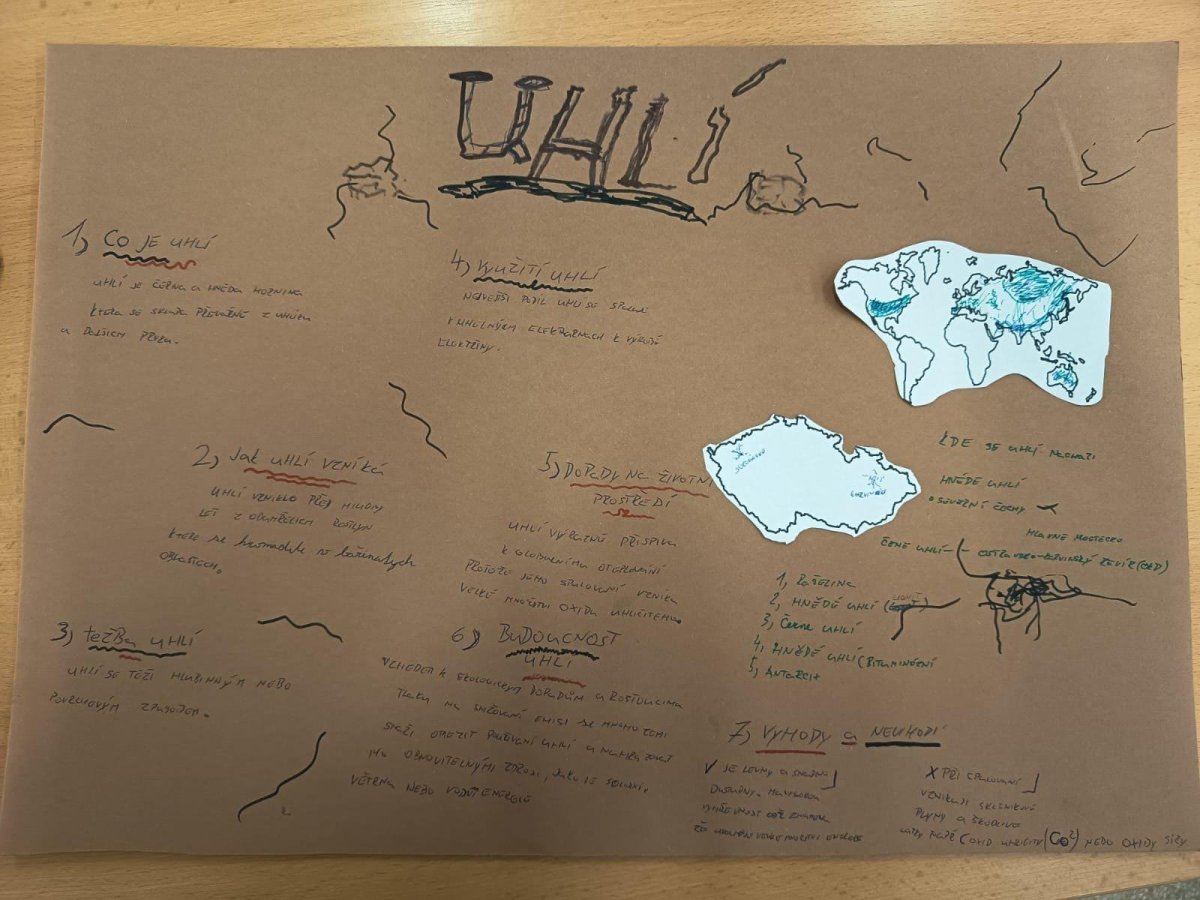 UHLÍ
1, CO JE UHLÍ
UHLÍ JE ČERNÁ A HNĚDÁ HORNINA
KTERÁ SE SKLÁDÁ PŘEVÁŽNĚ Z UHLÍKU
A DALŠÍCH PRVKŮ.
2, Jak UHLÍ VZNIKÁ
UHLÍ VZNIKLO PŘED MILIONY
LET Z ODUMŘELÝCH ROSTLIN
které se hromadily v bažinatých
OBLASTECH.
3, těžBa UHLÍ
UHLÍ SE TĚŽÍ HLUBINNÝM NEBO
POVRCHOVÝM ZPŮSOBEM.
4, VYUŽITÍ UHLÍ
NEJVĚTŠÍ PODÍL UHLÍ SE SPALUJE
V UHELNÝCH ELEKTRÁRNÁCH K VÝROBĚ
ELEKTŘINY.
5, DOPADY NA ŽIVOTNÍ
PROSTŘEDÍ
UHLÍ VÝRAZNĚ PŘISPÍVÁ
K GLOBÁLNÍMU OTEPLOVÁNÍ
PROTOŽE JEHO SPALOVÁNÍ VZNIKÁ
VELKÉ MNOŽSTVÍ OXIDU UHLIČITÉHO.
6, BUDOUCNOST
UHLÍ
VZHLEDEM K EKOLOGICKÝM DOPADŮM A ROSTOUCÍMU
TLAKU NA SNIŽOVÁNÍ EMISÍ SE MNOHO ZEMÍ
SNAŽÍ OMEZIT POUŽÍVÁNÍ UHLÍ A NAHRAZOVAT
OBNOVITELNÝMI ZDROJI, JAKO JE SOLÁRNÍ,
VĚTRNÁ NEBO VODNÍ ENERGIE
KDE SE UHLÍ NACHÁZÍ
HNĚDÉ UHLÍ
SEVERNÍ ČECHY
HLAVNĚ MOSTECKO
ČERNÉ UHLÍ - OSTRAVSKO-KARVINSKÝ REVÍR (OKD)
1, RAŠELINA
2, HNĚDÉ UHLÍ
3, Černé UHLÍ
4, HNĚDÉ UHLÍ (BITUMINÓZNÍ
5, ANTRACIT
7, VÝHODY a NEVÝHODY
√ JE LEVNÝ A SNADNO
DOSTUPNÝ.
X PŘI SPALOVÁNÍ
VZNIKAJÍ SKLENÍKOVÉ
PLYNY A ŠKODLIVÉ
LÁTKY OXID UHLIČITÝ (CO²) NEBO OXIDY SÍRY